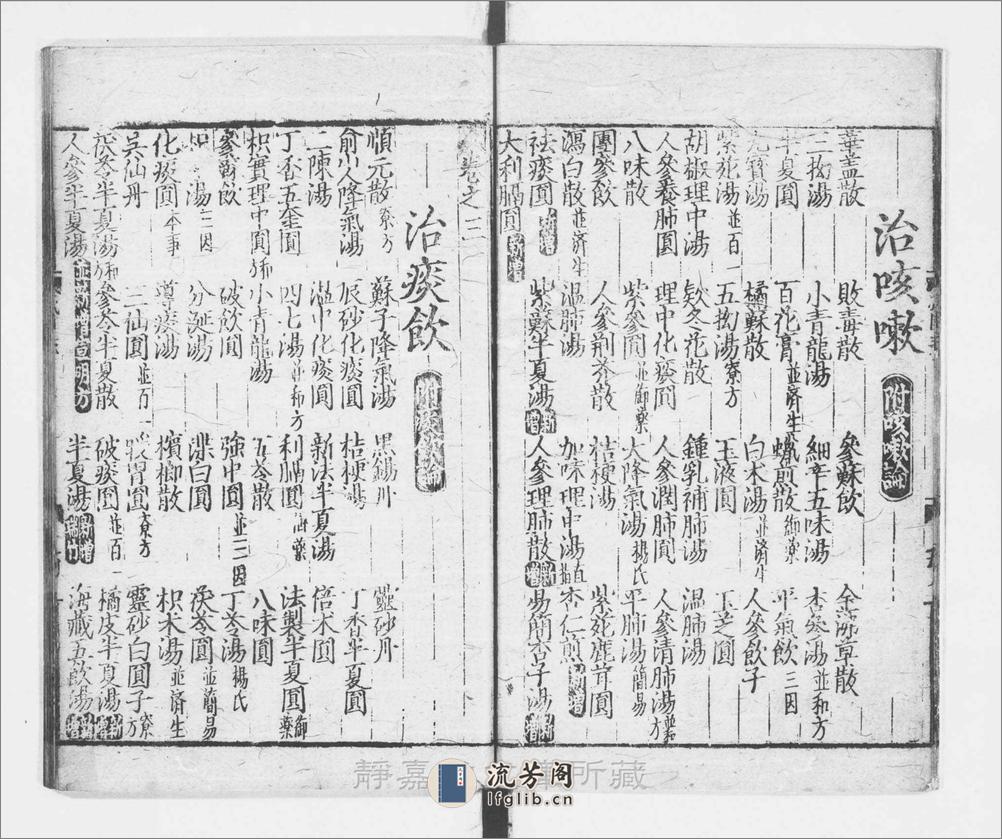 治咳嗽 附咳嗽論
華蓋散 敗毒散 參蘇飲 金沸草散
三拗湯 小青龍湯 細辛五味湯 杏參湯並和方
半夏圓 百花膏並濟生 蠟煎散御藥 平氣飲三因
橘蘇散 白朮湯並濟生 人參飲子
紫菀湯並百一 五拗湯寮方 玉液圓 玉芝圓
胡椒理中湯 款冬花散 鍾乳補肺湯 溫肺湯
人參養肺圓 理中化痰圓 人參潤肺圓 人參清肺湯
八味散 紫參圓並御藥 大降氣湯楊氏 平肺湯簡易
團參飲 人參荊芥散 桔梗湯 紫菀鹿茸圓
瀉白散並濟生 溫肺湯 加味理中湯 杏仁煎新增
祛痰圓新增 紫蘇半夏湯新增 人參理肺散新增 易簡杏子湯新增
大利膈圓新增
卷之三
治痰飲
順元散寮方 蘇子降氣湯 黑錫丹 靈砂丹
俞山人降氣湯 辰砂化痰圓 桔梗湯 丁香半夏圓
二陳湯 溫中化痰圓 新法半夏湯 倍朮圓
丁香五套圓 四七湯並和方 利膈圓御藥 法製半夏圓御藥
枳實理中圓和 小青龍湯 五苓散 八味圓
參蘇飲 破飲圓 強中圓並三因 丁苓湯楊氏
湯三因 分涎湯 瀉白圓 茯苓圓並簡易
化痰圓本事 導痰湯 檳榔散 枳朮湯並濟生
吳仙丹 三仙圓並百一 胃圓寮方 靈砂白圓子寮方
茯苓半夏湯和 參苓半夏散 破痰圓並百一 橘皮半夏湯新增
人參半夏湯 半夏湯新增 海藏五飲湯新增
靜嘉 所藏
流芳阁
lfglib.cn